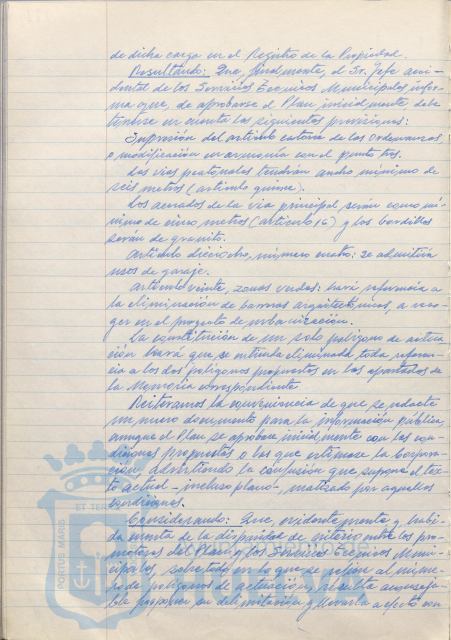 de dicha carga en el Registro de la Propiedad.
Resultando: Que, finalmente, el Sr. Jefe acci-
dental de los Servicios Técnicos Municipales infor-
ma que, de aprobarse el Plan, inicialmente debe
tenerse en cuenta las siguientes previsiones:
Supresión del artículo catorce de las Ordenanzas,
o modificación en armonía con el punto tres.
Las vías peatonales tendrán ancho mínimo de
seis metros (artículo quince).
Los acerados de la vía principal serán como mí-
nimo de cinco metros (artículo 16) y los bordillos
serán de granito.
Artículo dieciocho, número cuatro: se admitirán
usos de garaje.
Artículo veinte, zonas verdes: hará referencia a
la eliminación de barreras arquitectónicas, a reco-
ger en el proyecto de urbanización.
La constitución de un solo polígono de actua-
ción hará que se entienda eliminada toda referen-
cia a los dos polígonos propuestos en los apartados de
la Memoria correspondiente.
Reiteramos la conveniencia de que se redacte
un nuevo documento para la información pública,
aunque el Plan se apruebe inicialmente con las con-
diciones propuestas o las que estimase la Corpora-
ción, advirtiendo la confusión que supone el tex-
to actual - incluso plano -, matizado por aquellas
condiciones.
Considerando: Que, evidentemente y habi-
da cuenta de la disparidad de criterio entre los pro-
motores del Plan y los Servicios Técnicos Muni-
cipales, sobre todo en lo que se refiere al núme-
ro de polígonos de actuación, resulta aconseja-
ble proponer su delimitación y llevarla a efecto con
PORTUS MARIS
ET TER